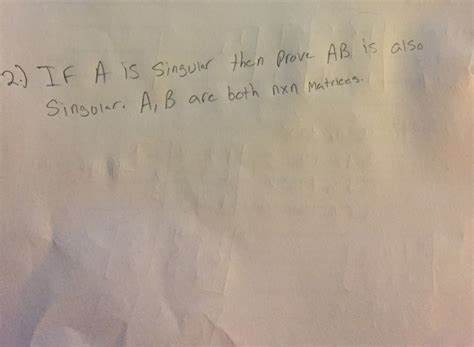 2.) IF A is Singular then Prove AB is also
Singular. A, B are both nxn Matrices.